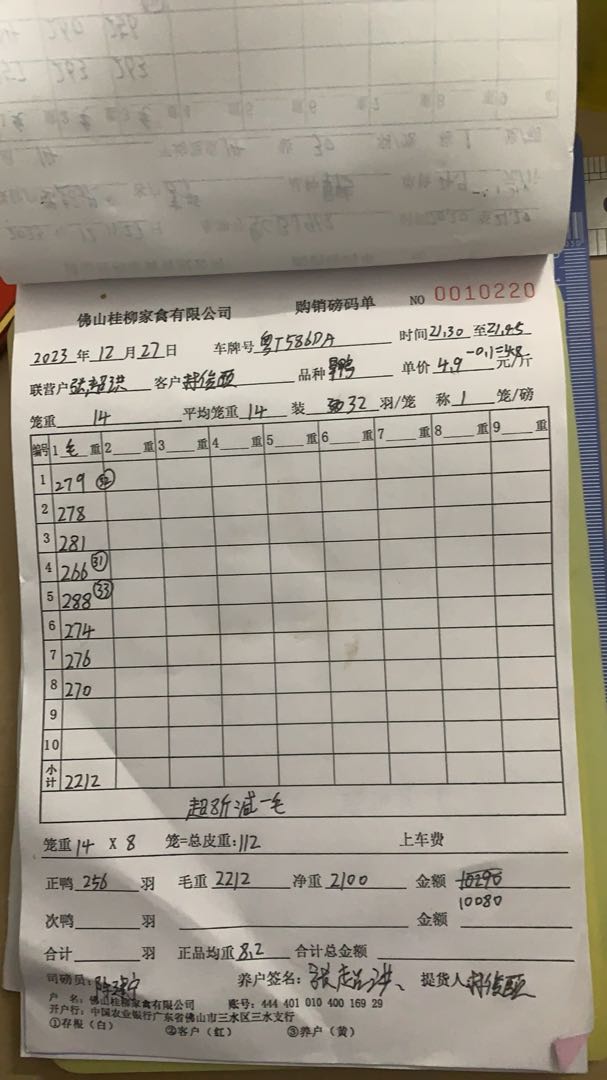 佛山桂柳家禽有限公司 购销磅码单 NO 0010220
2023年12月27日 车牌号粤T586DA 时间21,30至21,45
联营户 客户 品种 单价4,9-0,1=4,8元/斤
笼重14 平均笼重14 装32羽/笼 称1笼/磅
编号 1毛重 2重 3重 4重 5重 6重 7重 8重 9重
1 279 (32)
2 278
3 281
4 266 (31)
5 288 (33)
6 274
7 276
8 270
9
10
小计 2212
超8斤减一毛
笼重14 X 8 笼=总皮重:112 上车费
正鸭256羽 毛重2212 净重2100 金额10290
10080
次鸭羽 金额
合计羽 正品均重8,2 合计总金额
司磅员: 养户签名: 提货人
户 名: 佛山桂柳家禽有限公司 账号: 444 401 010 400 169 29
开户行: 中国农业银行广东省佛山市三水区三水支行
①存根（白） ②客户（红） ③养户（黄）